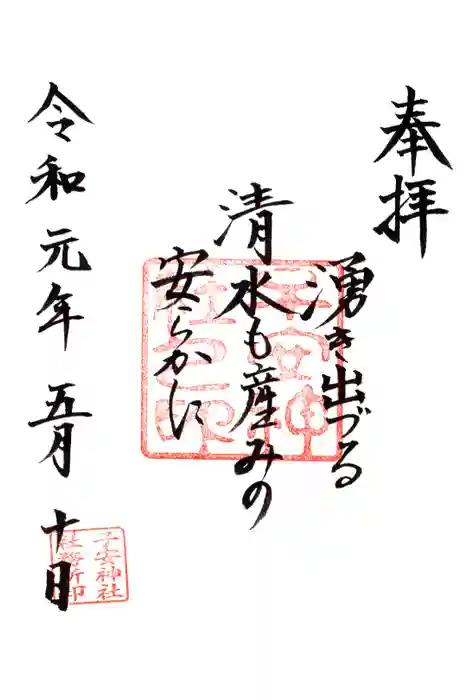 奉拝
湧き出づる
清水も産みの
安らかに
令和元年五月十日
子安神社
社之印
子安神社
社務所印